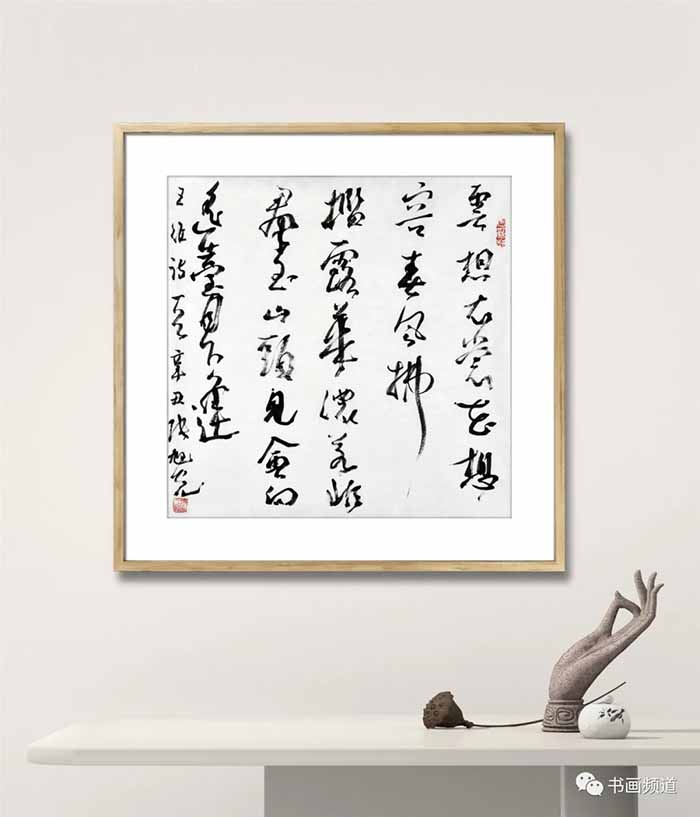 雲想衣裳花想
容春風拂
檻露華濃若非
群玉山頭見會向
瑤臺月下逢
王維詩 辛丑張旭光
书画频道